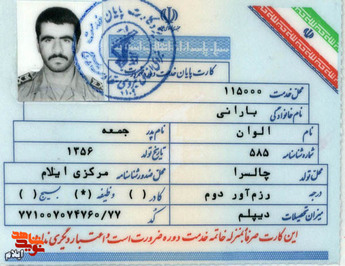 کارت پایان خدمت
محل خدمت ۱۱۵۰۰۰
نام خانوادگی بارانی
نام الوان نام پدر جمعه
شماره شناسنامه ۵۸۵ تاریخ تولد ۱۳۵۶
محل تولد چالسرا محل صدور شناسنامه مرکزی ایلام
درجه رزم‌آور دوم کادر ( ) وظیفه (*) بسیج ( )
میزان تحصیلات دیپلم کد ۷۷۱۰۰۷۰۷۴۷۶۰/۷۷
این کارت صرفاً بمنزله خاتمه خدمت دوره ضرورت است و اعتبار دیگری ندارد
ایلام